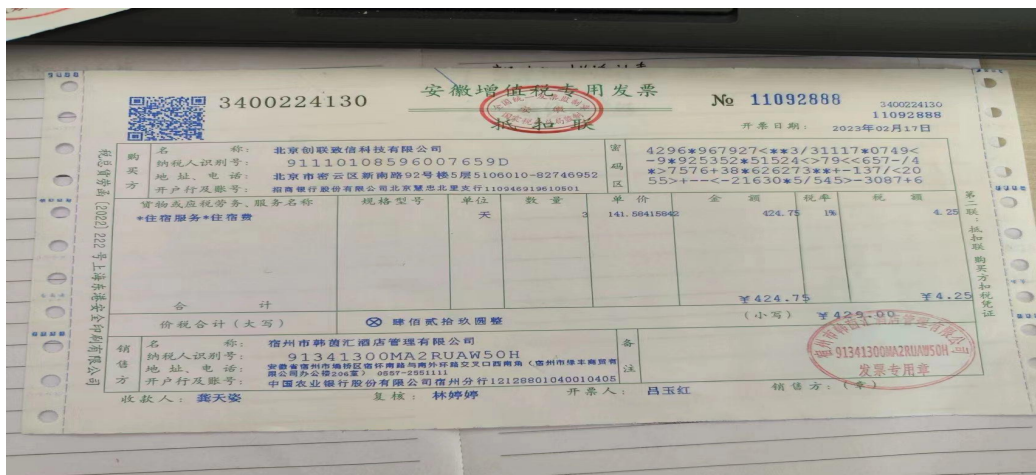 安徽增值税专用发票
抵扣联
3400224130
№ 11092888
3400224130
11092888
开票日期: 2023年02月17日
税总货劳函〔2022〕222号上海东港安全印刷有限公司
购买方
名 称: 北京创联致信科技有限公司
纳税人识别号: 91110108596007659D
地址、电话: 北京市密云区新南路92号楼5层5106010-82746952
开户行及账号: 招商银行股份有限公司北京慧忠北里支行110946919610501
密码区
4296*967927<**3/31117*0749<
-9*925352*51524<>79<<657-/4
*>7576+38*626273**+-137/<20
55>+--<-21630*5/545>-3087+6
货物或应税劳务、服务名称 规格型号 单位 数量 单价 金额 税率 税额
*住宿服务*住宿费 天 3 141.58415842 424.75 1% 4.25
合 计 ¥424.75 ¥4.25
价税合计(大写) ⊗ 肆佰贰拾玖圆整 (小写) ¥429.00
销售方
名 称: 宿州市韩茵汇酒店管理有限公司
纳税人识别号: 91341300MA2RUAW50H
地址、电话: 安徽省宿州市埇桥区宿怀南路与南外环路交叉口西南角(宿州市缘丰商贸有
限公司办公楼206室) 0557-2551111
开户行及账号: 中国农业银行股份有限公司宿州分行12128801040010405
备注
收款人: 龚天姿 复核: 林婷婷 开票人: 吕玉红 销售方:(章)
91341300MA2RUAW50H
发票专用章
第二联:抵扣联 购买方扣税凭证